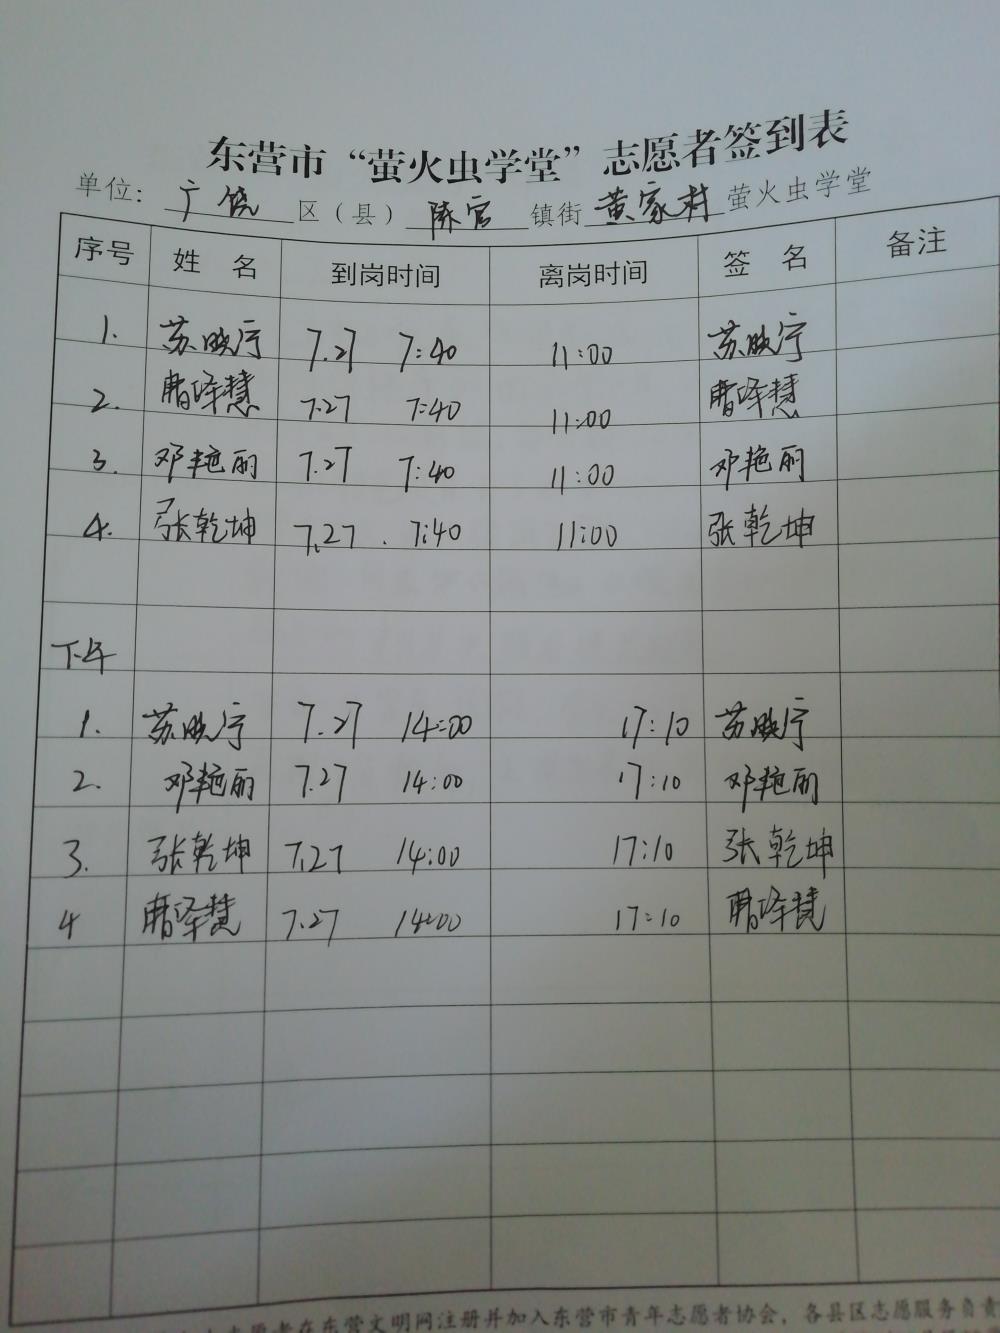 东营市“萤火虫学堂”志愿者签到表
单位：广饶区（县）陈官镇街黄家村萤火虫学堂
序号 姓名 到岗时间 离岗时间 签名 备注
1. 苏晓宁 7.27 7:40 11:00 苏晓宁
2. 曹泽慧 7.27 7:40 11:00 曹泽慧
3. 邓艳丽 7.27 7:40 11:00 邓艳丽
4. 张乾坤 7.27. 7:40 11:00 张乾坤
下午
1. 苏晓宁 7.27 14:00 17:10 苏晓宁
2. 邓艳丽 7.27 14:00 17:10 邓艳丽
3. 张乾坤 7.27 14:00 17:10 张乾坤
4 曹泽慧 7.27 14:00 17:10 曹泽慧
志愿者在东营文明网注册并加入东营市青年志愿者协会，各县区志愿服务负责